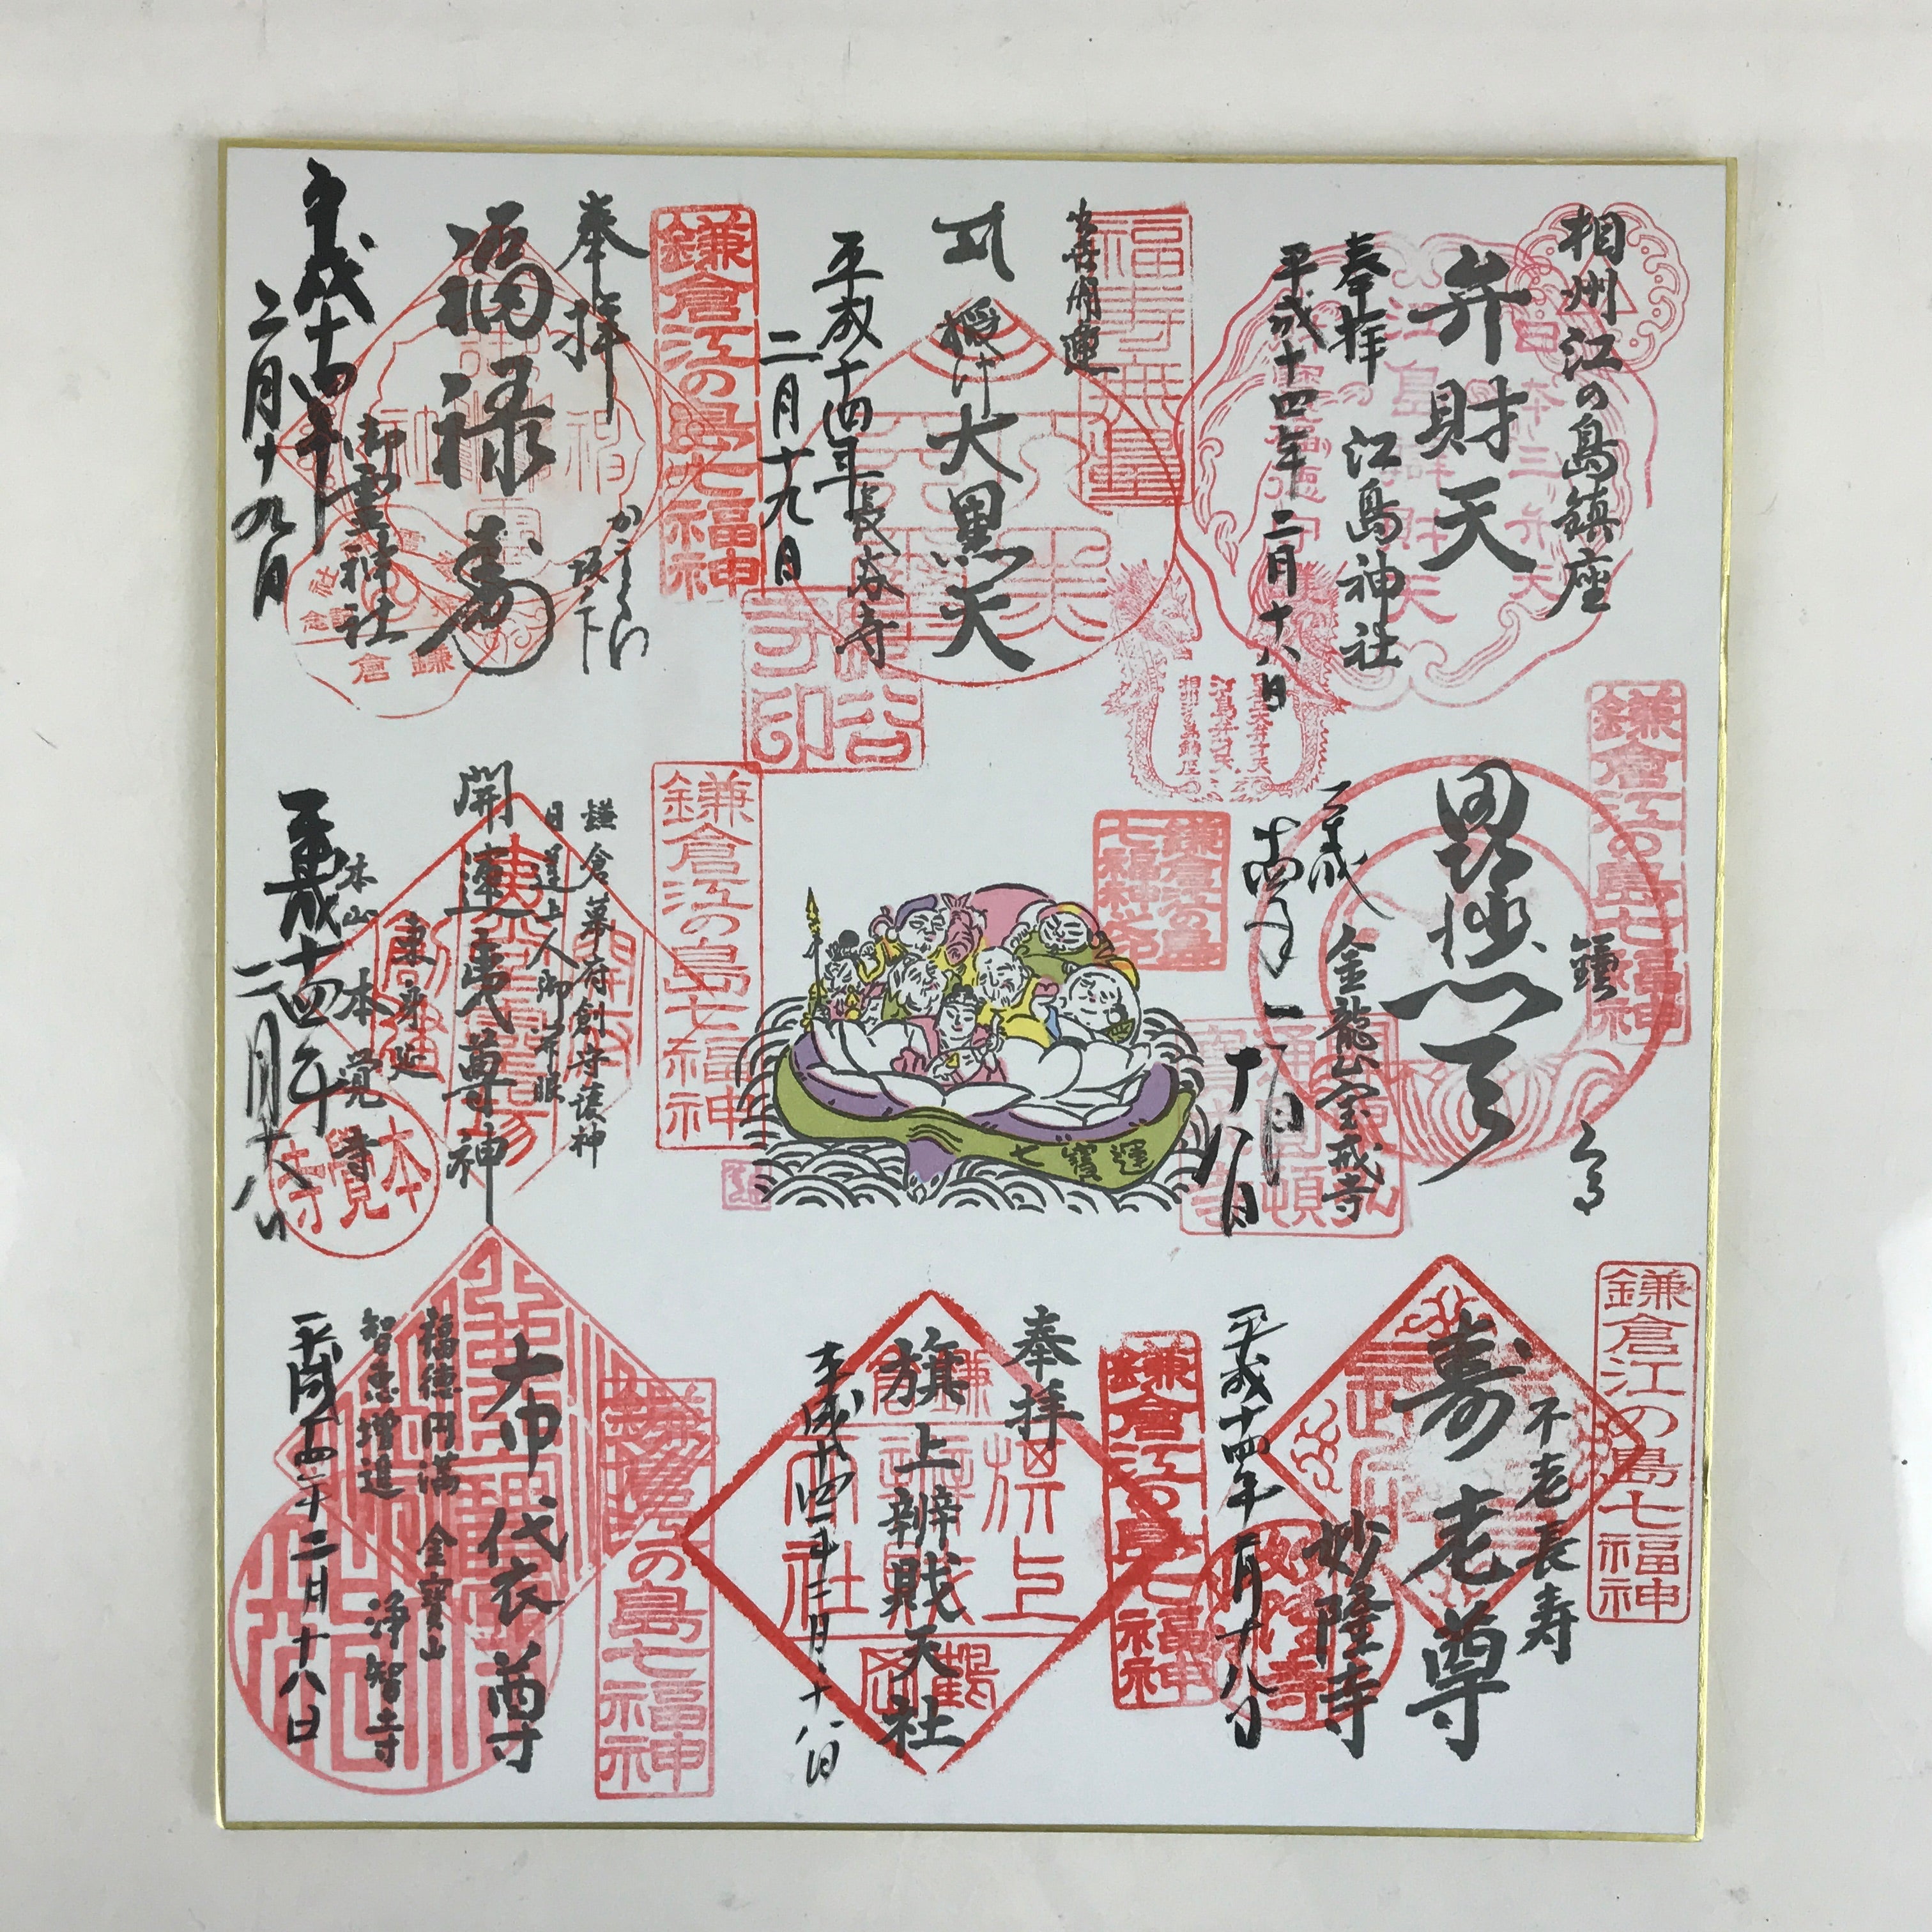 相州江の島鎮座
弁財天
奉拝 江島神社
平成十四年二月十八日
福寿無量
出世開運
出世 大黒天
長谷寺
平成十四年
二月十九日
鎌倉江の島七福神
奉拝
かまくら
坂ノ下
福禄寿
御霊神社
平成十四年
二月十九日
鎌倉江の島七福神
鎌倉
毘沙門天
金龍山宝戒寺
平成十四年二月十八日
鎌倉江の島七福神之印
七寳運
鎌倉江の島七福神
鎌倉幕府創守護神
日蓮上人御開眼
開運夷尊神
東身延
本山 本覚寺
本覺寺
平成十四年
二月十八日
鎌倉江の島七福神
不老長寿
寿老尊
妙隆寺
平成十四年二月十八日
鎌倉江の島七福神
奉拝
旗上辨財天社
平成十四年二月十八日
鎌倉江の島七福神
布袋尊
福徳円満
智恵増進
金寶山
浄智寺
平成十四年二月十八日